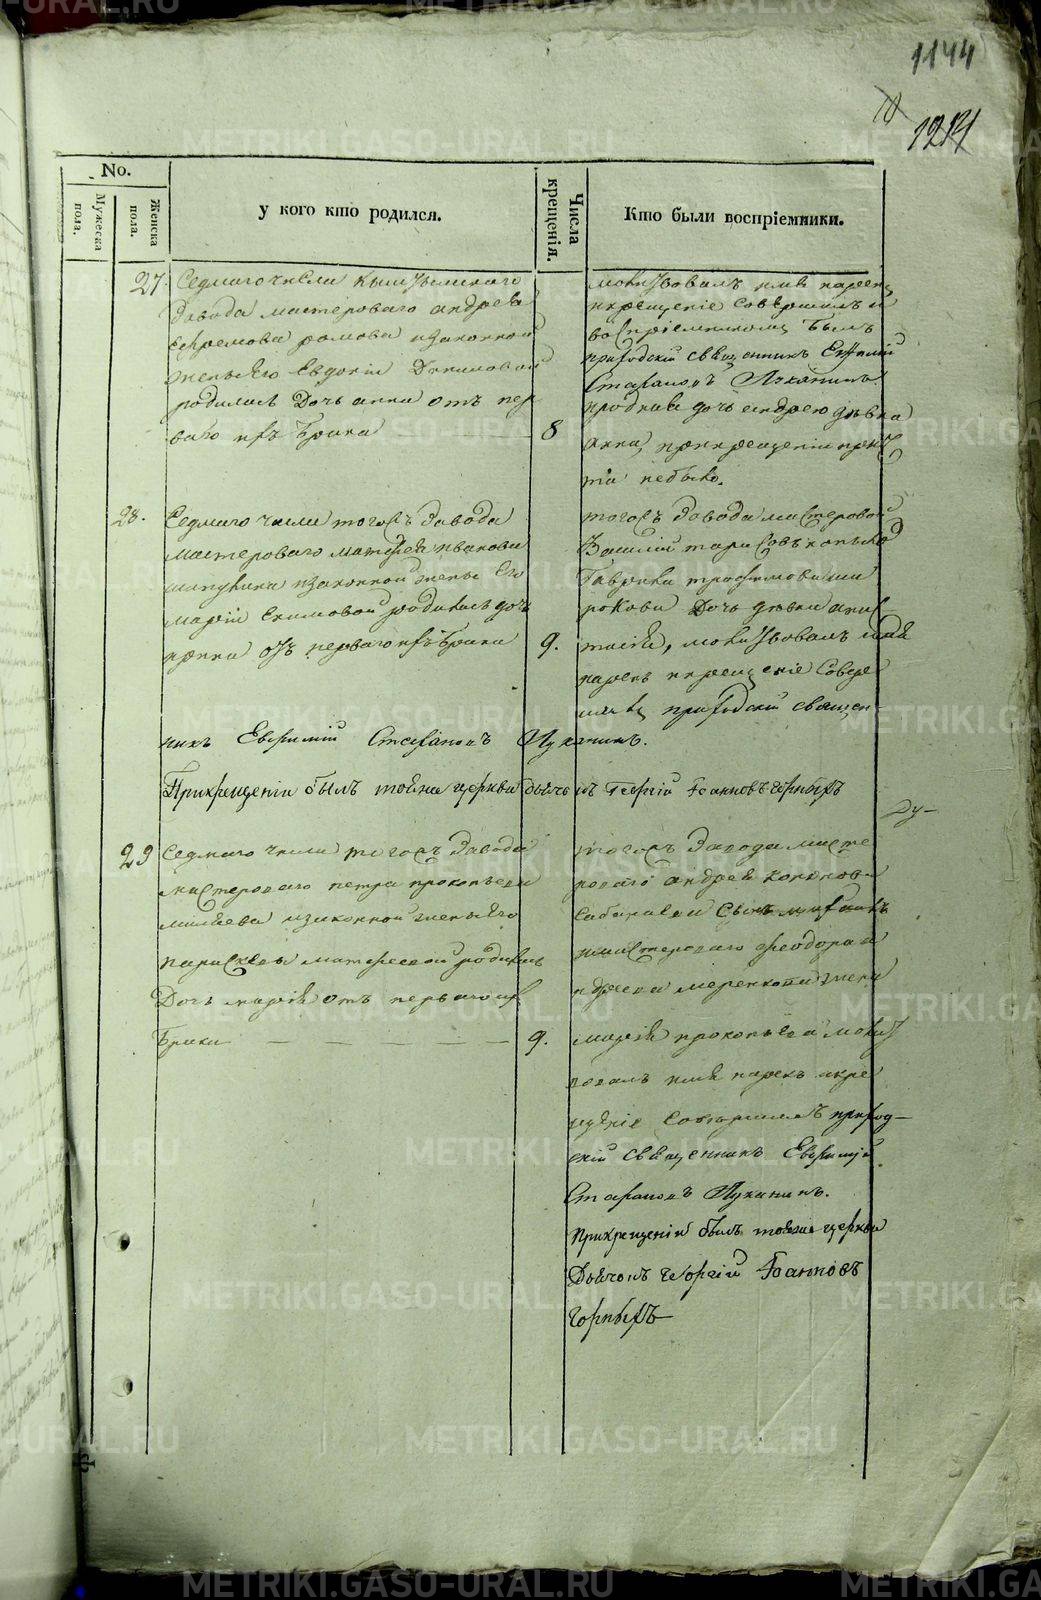 1144
10
1214
No.
Мужеска пола.
Женска пола.
у кого кто родился.
Числа крещенія.
Кто были воспріемники.
27. Седмаго числа Кыштымскаго
Завода мастероваго андрея
ефремова ромова изаконной
жены Его Евдокіи Даниловой
родилась Дочь анна отъ пер
ваго ихъ брака
8
молитвовалъ имя нарекъ
икрещеніе совершилъ и
воспріемникомъ былъ
приходскій священникъ Евфимій
Стефановъ Луканинъ
дочь андрею девка
анна прикрещеніи при
та небыло.
28. Седмаго числа тогожъ Завода
мастероваго матфея иванова
изаконной жены Его
маріи Екимовой родилась дочь
ирина отъ перваго ихъ брака
9.
тогожъ Завода мастеровой
Василій тарасовъ
Гаврила трофимова ши
рокова Дочь девка анас
тасія, молитвовалъ имя
нарекъ икрещеніе Совер
шилъ приходскій священ-
никъ Евфимій Стефановъ Луканинъ.
Прикрещеніи былъ тояже церкви дьячекъ Георгій Іоанновъ Горныхъ
29 Седмаго числа тогожъ Завода
мастероваго петра прокопьева
миляева изаконной жены Его
парасковьи матфеевой родилась
Дочь марія отъ перваго их
брака
9.
тогожъ Завода масте
роваго андрея кононова
Сабанаева Сынъ
имастероваго феодора а
ндреева жена
марія прокопьева молит
вовалъ имя нарекъ икре
щеніе Совершилъ приход-
скій священникъ Евфимій
Стефановъ Луканинъ.
Прикрещеніи былъ тояже церкви
Дьячокъ Георгій Іоанновъ
Горныхъ
Ду-
METRIKI.GASO-URAL.RU